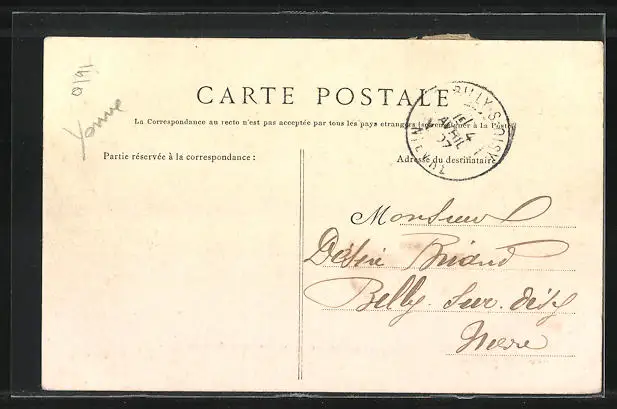 0/91
Yonne
CARTE POSTALE
La Correspondance au recto n'est pas acceptée par tous les pays étrangers (se renseigner à la Poste)
Partie réservée à la correspondance :
Adresse du destinataire
BILLY-S-OISY
4
AVRIL
07
NIEVRE
Monsieur
Désiré Briand
Billy-Sur-Oisy